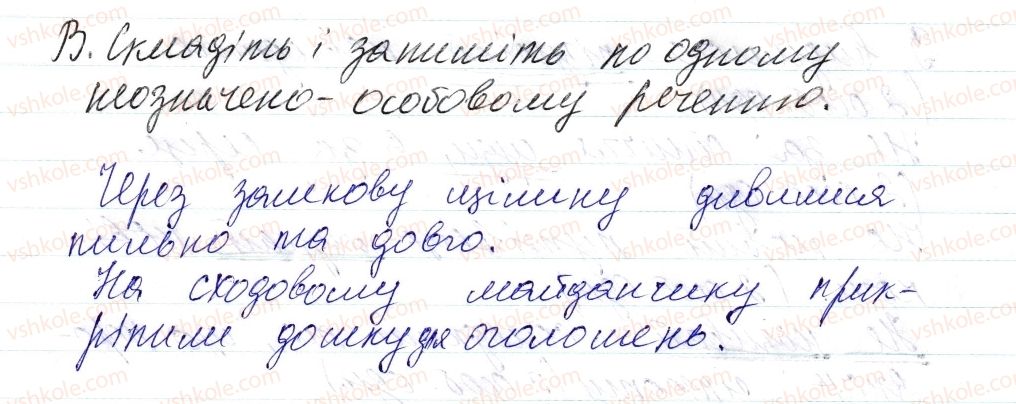 В. Складіть і запишіть по одному
неозначено-особовому реченню.
Через замкову щілину дивилися
пильно та довго.
На сходовому майданчику прик-
ріпили дошку для оголошень.